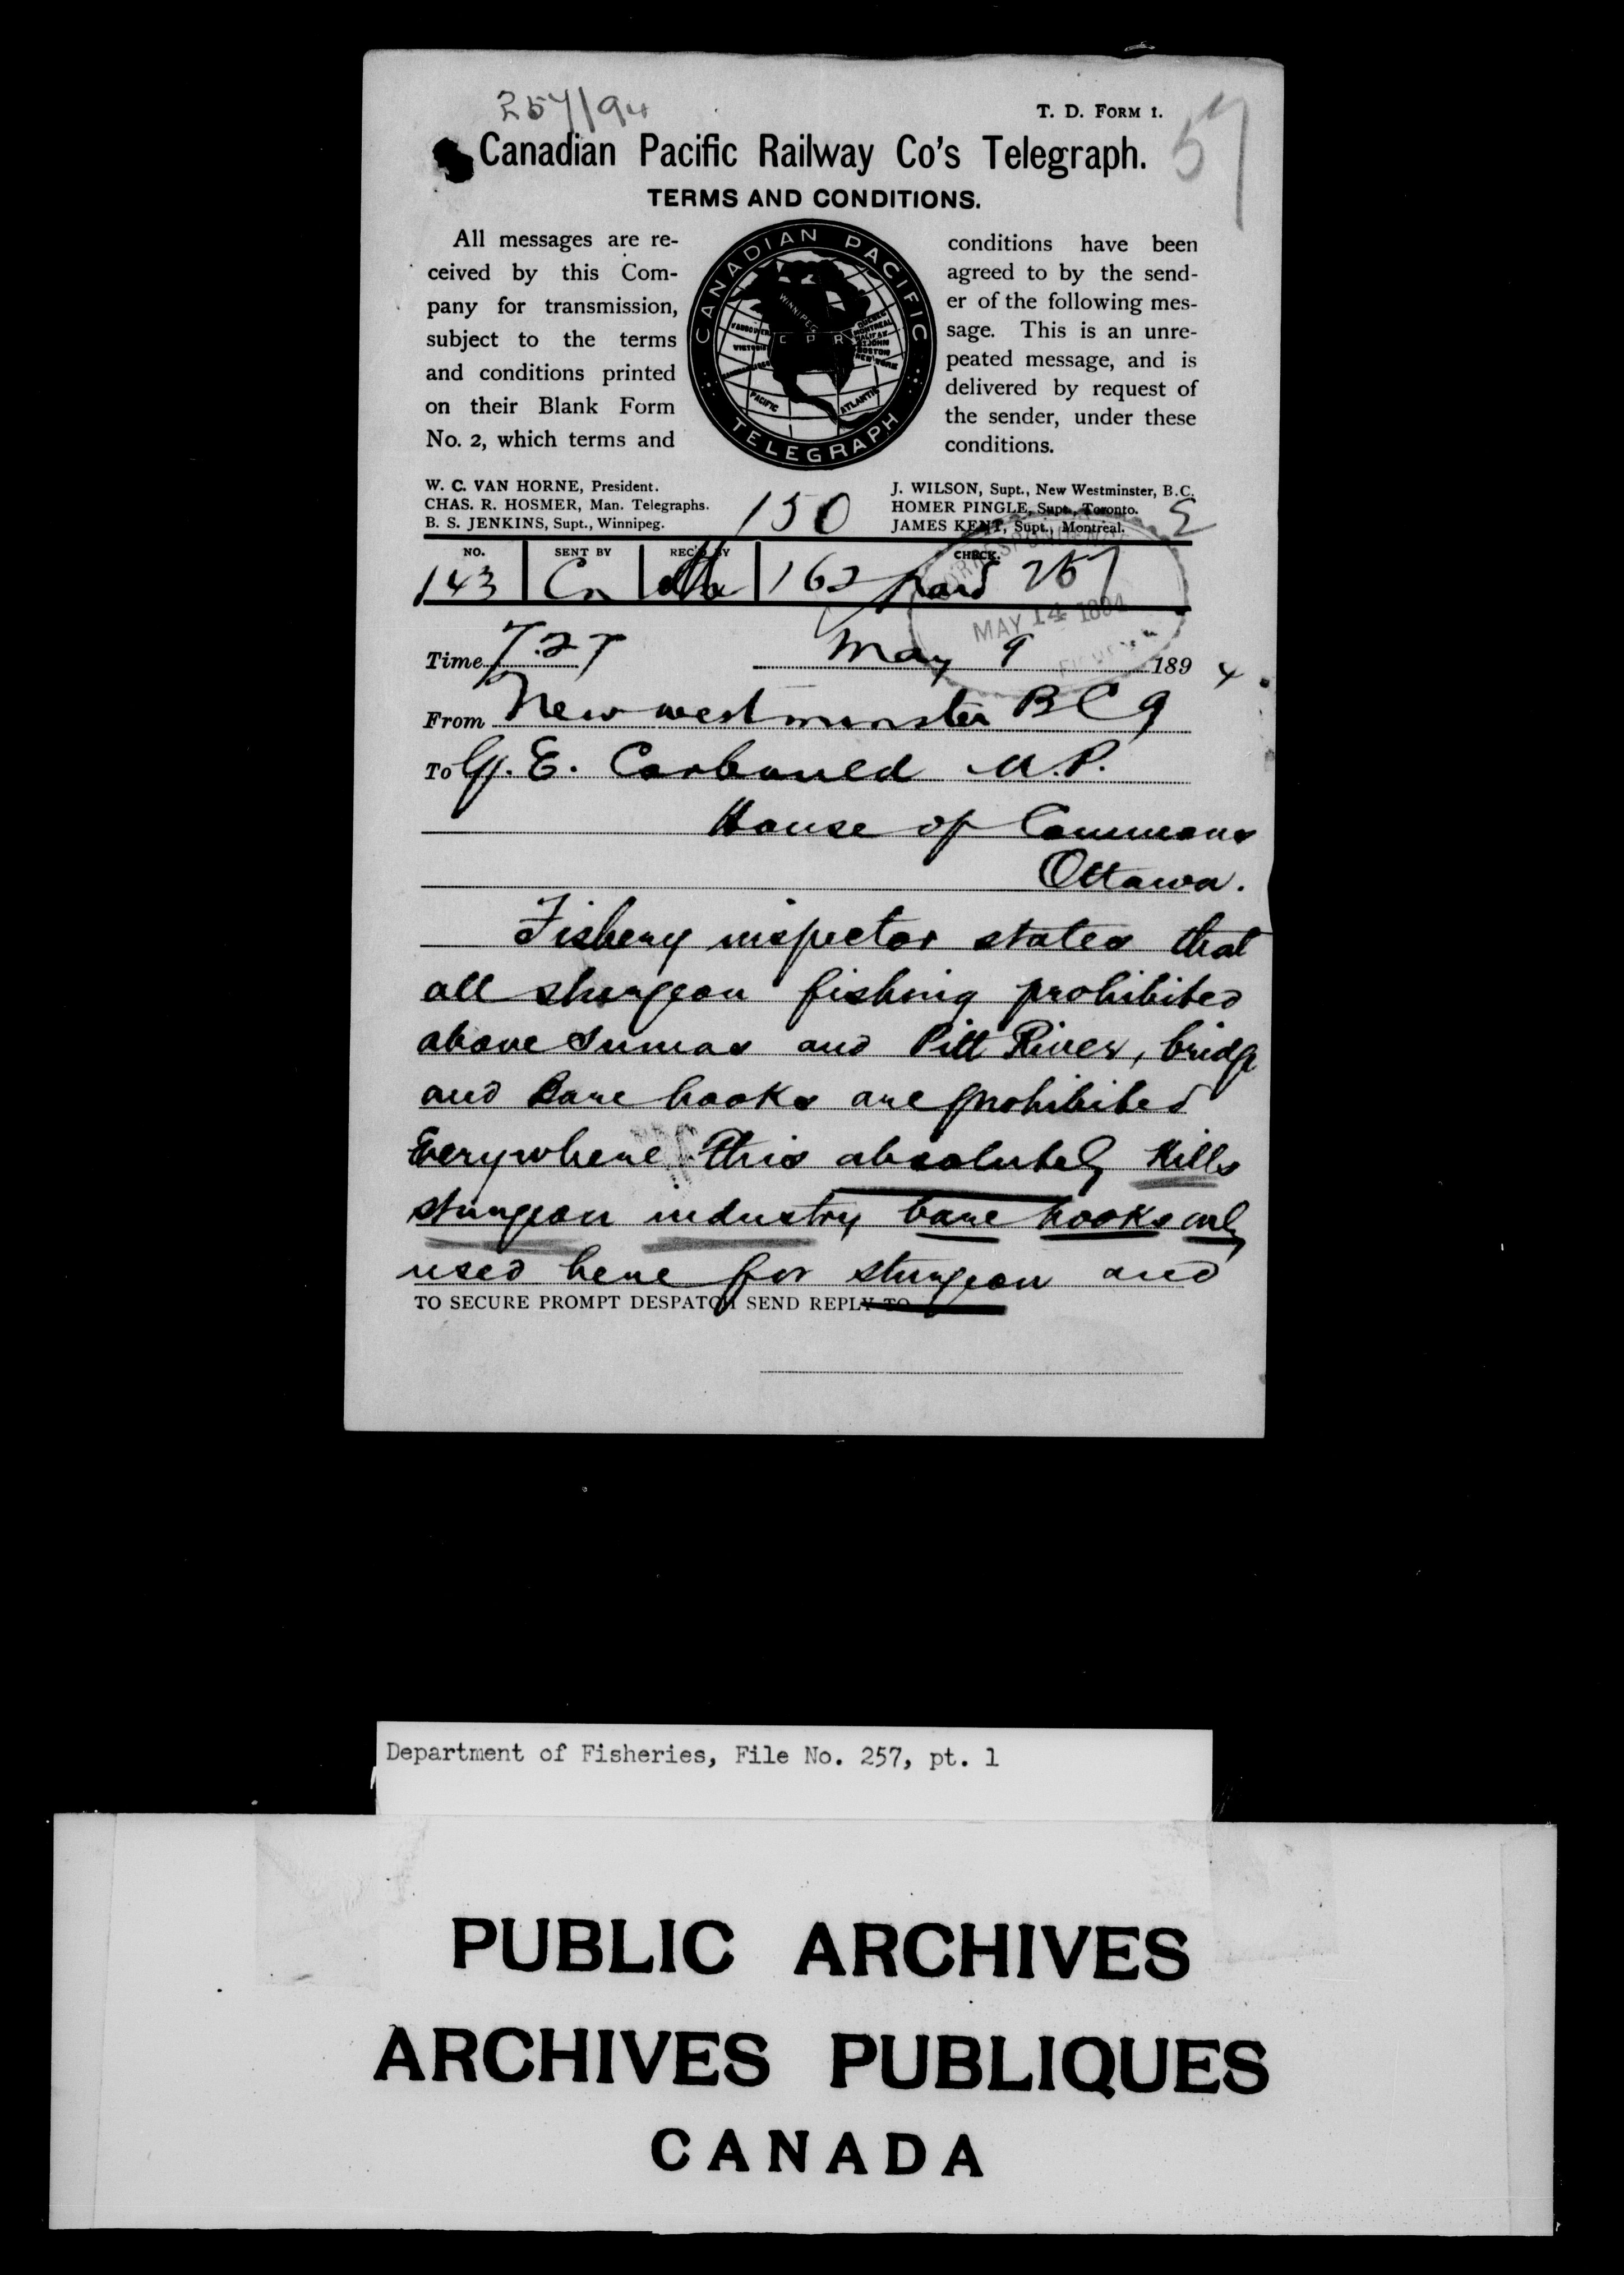 257/94
T. D. FORM 1.
57
Canadian Pacific Railway Co's Telegraph.
TERMS AND CONDITIONS.
All messages are re-
ceived by this Com-
pany for transmission,
subject to the terms
and conditions printed
on their Blank Form
No. 2, which terms and
CANADIAN PACIFIC
TELEGRAPH
WINNIPEG
VANCOUVER
VICTORIA
QUEBEC
MONTREAL
HALIFAX
ST JOHN
BOSTON
NEW YORK
C P R
PACIFIC
ATLANTIC
conditions have been
agreed to by the send-
er of the following mes-
sage. This is an unre-
peated message, and is
delivered by request of
the sender, under these
conditions.
W. C. VAN HORNE, President.
CHAS. R. HOSMER, Man. Telegraphs.
B. S. JENKINS, Supt., Winnipeg.
150
J. WILSON, Supt., New Westminster, B.C.
HOMER PINGLE, Supt., Toronto.
JAMES KENT, Supt., Montreal.
NO. SENT BY REC'D BY CHECK.
143 Cn 162 paid 257
MAY 14 1894
Time 7.27 May 9 1894
From New westminster BC 9
To G. E. Corbould M.P.
House of Commons
Ottawa.
Fishery inspector states that
all sturgeon fishing prohibited
above Sumas and Pitt River, bridge
and bare hooks are prohibited
Everywhere this absolutely kills
sturgeon industry bare hooks only
used here for sturgeon and
TO SECURE PROMPT DESPATCH SEND REPLY TO
Department of Fisheries, File No. 257, pt. 1
PUBLIC ARCHIVES
ARCHIVES PUBLIQUES
CANADA